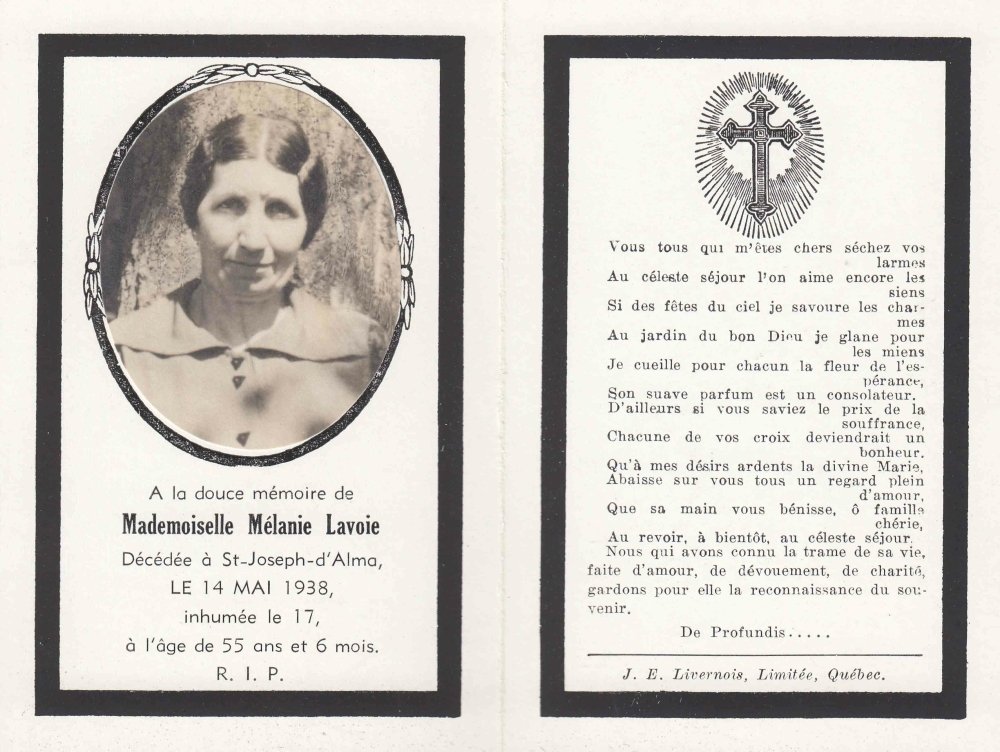 A la douce mémoire de
Mademoiselle Mélanie Lavoie
Décédée à St-Joseph-d'Alma,
LE 14 MAI 1938,
inhumée le 17,
à l'âge de 55 ans et 6 mois.
R. I. P.
Vous tous qui m'êtes chers séchez vos
larmes
Au céleste séjour l'on aime encore les
siens
Si des fêtes du ciel je savoure les char-
mes
Au jardin du bon Dieu je glane pour
les miens
Je cueille pour chacun la fleur de l'es-
pérance,
Son suave parfum est un consolateur.
D'ailleurs si vous saviez le prix de la
souffrance,
Chacune de vos croix deviendrait un
bonheur.
Qu'à mes désirs ardents la divine Marie,
Abaisse sur vous tous un regard plein
d'amour,
Que sa main vous bénisse, ô famille
chérie,
Au revoir, à bientôt, au céleste séjour.
Nous qui avons connu la trame de sa vie,
faite d'amour, de dévouement, de charité,
gardons pour elle la reconnaissance du sou-
venir.
De Profundis.....
J. E. Livernois, Limitée, Québec.